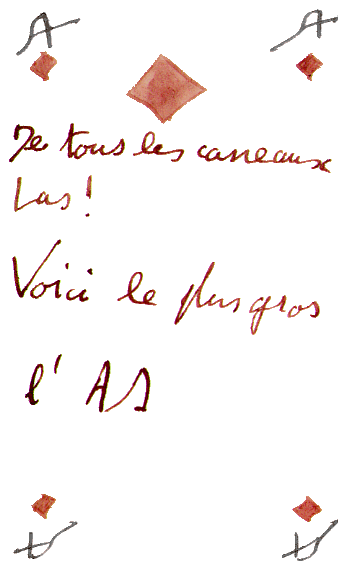 A A
De tous les carreaux
Las!
Voici le plus gros
l'AS
A A